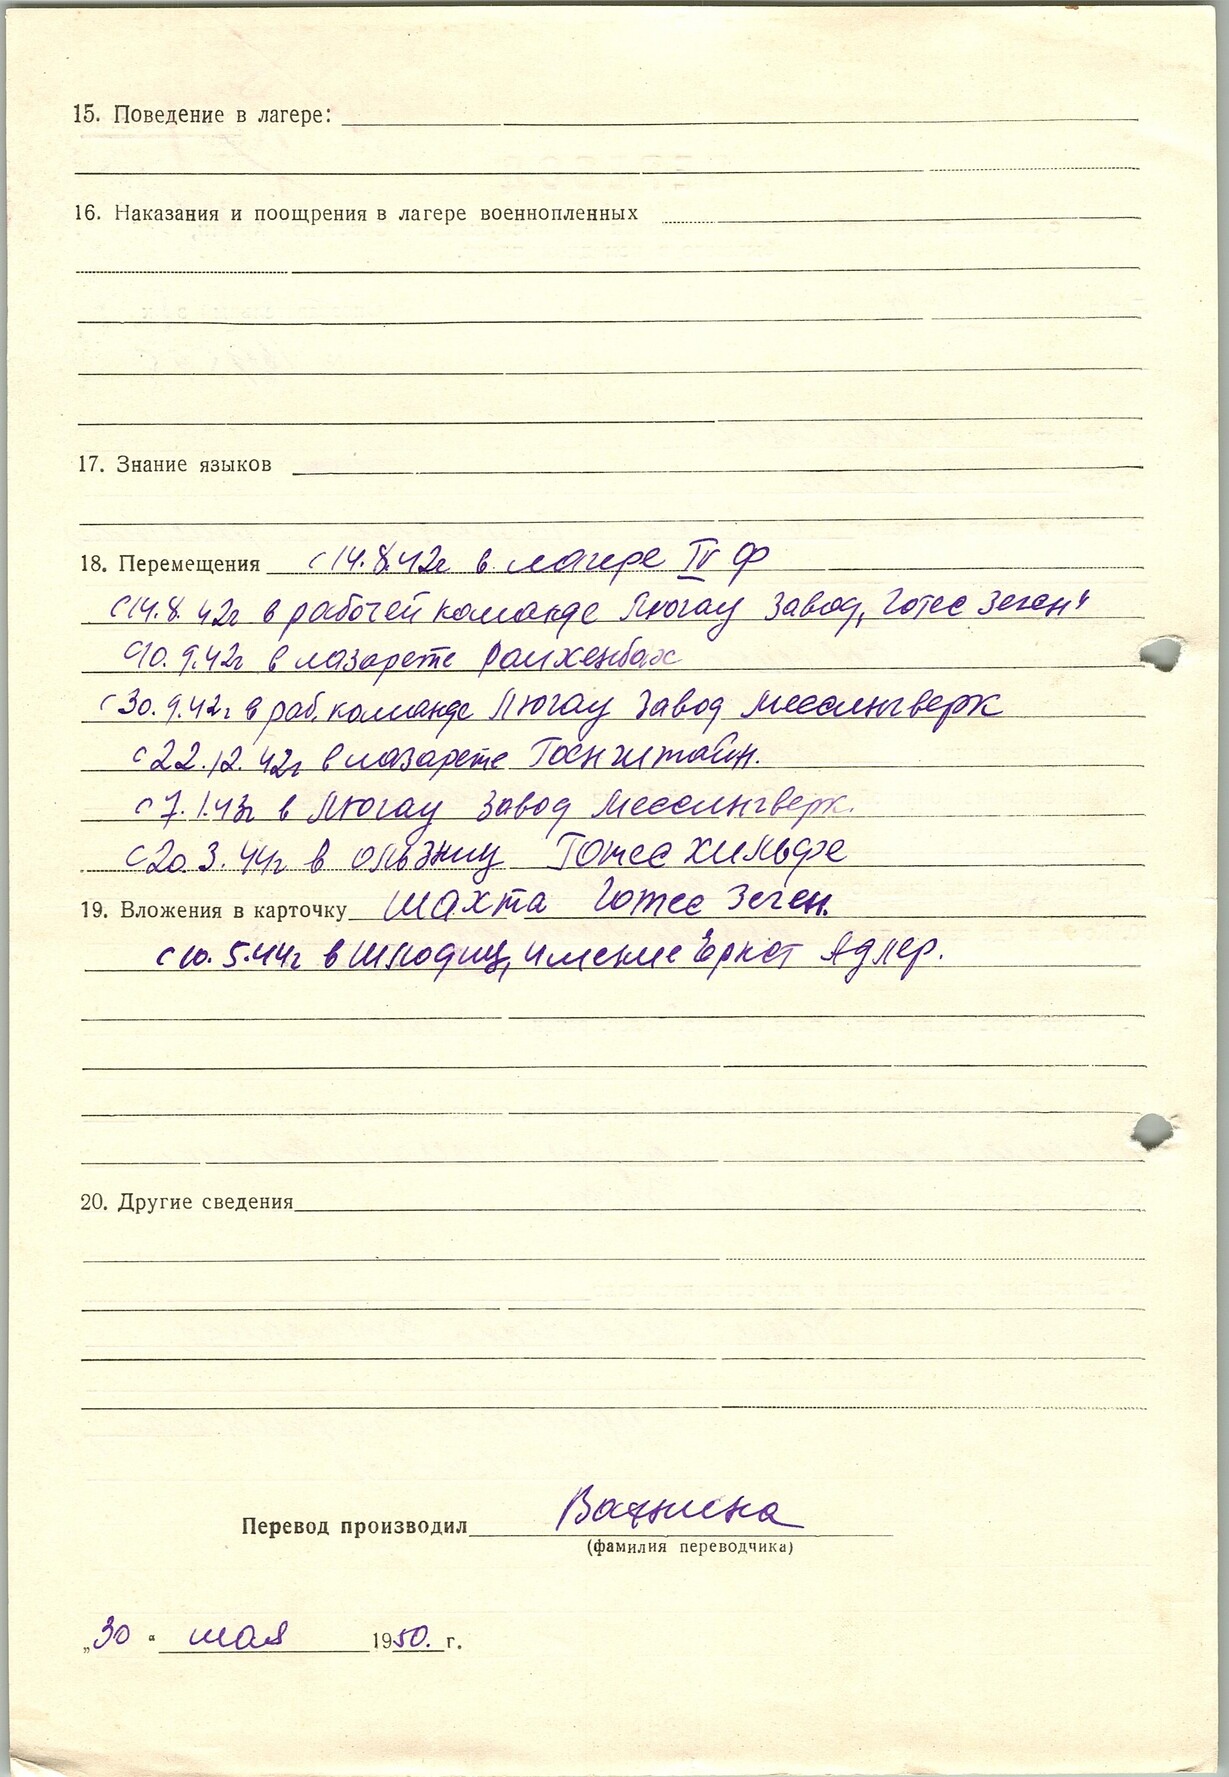 15. Поведение в лагере:
16. Наказания и поощрения в лагере военнопленных
17. Знание языков
18. Перемещения с 14.8.42г в лагере IV Ф
с 14.8.42г в рабочей команде Люгау Завод „Готес Зеген"
с 10.9.42г в лазарете Раихенбах
с 30.9.42г в раб. команде Люгау Завод Мессингверк
с 22.12.42г в лазарете
с 7.1.43г в Люгау Завод Мессингверк.
с 20.3.44г в Готес Хильфе
19. Вложения в карточку Шахта Готес Зеген.
с 10.5.44г в имение Ернст Адлер.
20. Другие сведения
Перевод производил
(фамилия переводчика)
„30" мая 1950. г.